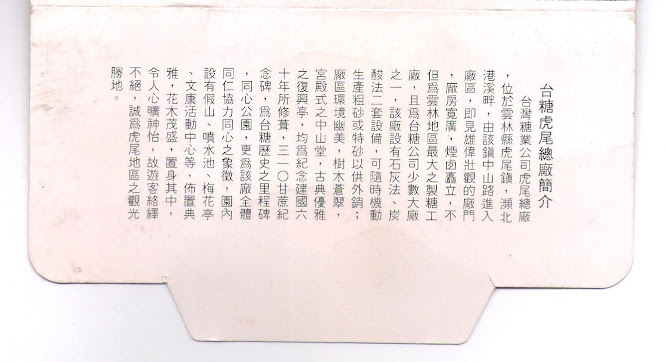 台糖虎尾總廠簡介
台灣糖業公司虎尾總廠
，位於雲林縣虎尾鎮，瀕北
港溪畔，由該鎮中山路進入
廠區，即見雄偉壯觀的廠門
，廠房寬廣，煙囪矗立，不
但爲雲林地區最大之製糖工
廠，且爲台糖公司少數大廠
之一，該廠設有石灰法、炭
酸法二套設備，可隨時機動
生產粗砂或特砂以供外銷；
廠區環境幽美，樹木蒼翠，
宮殿式之中山堂，古典優雅
之復興亭，均爲紀念建國六
十年所修葺，三一〇甘蔗紀
念碑，爲台糖歷史之里程碑
，同心公園，更爲該廠全體
同仁協力同心之象徵，園內
設有假山、噴水池、梅花亭
、文康活動中心等，佈置典
雅，花木茂盛，置身其中，
令人心曠神怡，故遊客絡繹
不絕，誠爲虎尾地區之觀光
勝地。